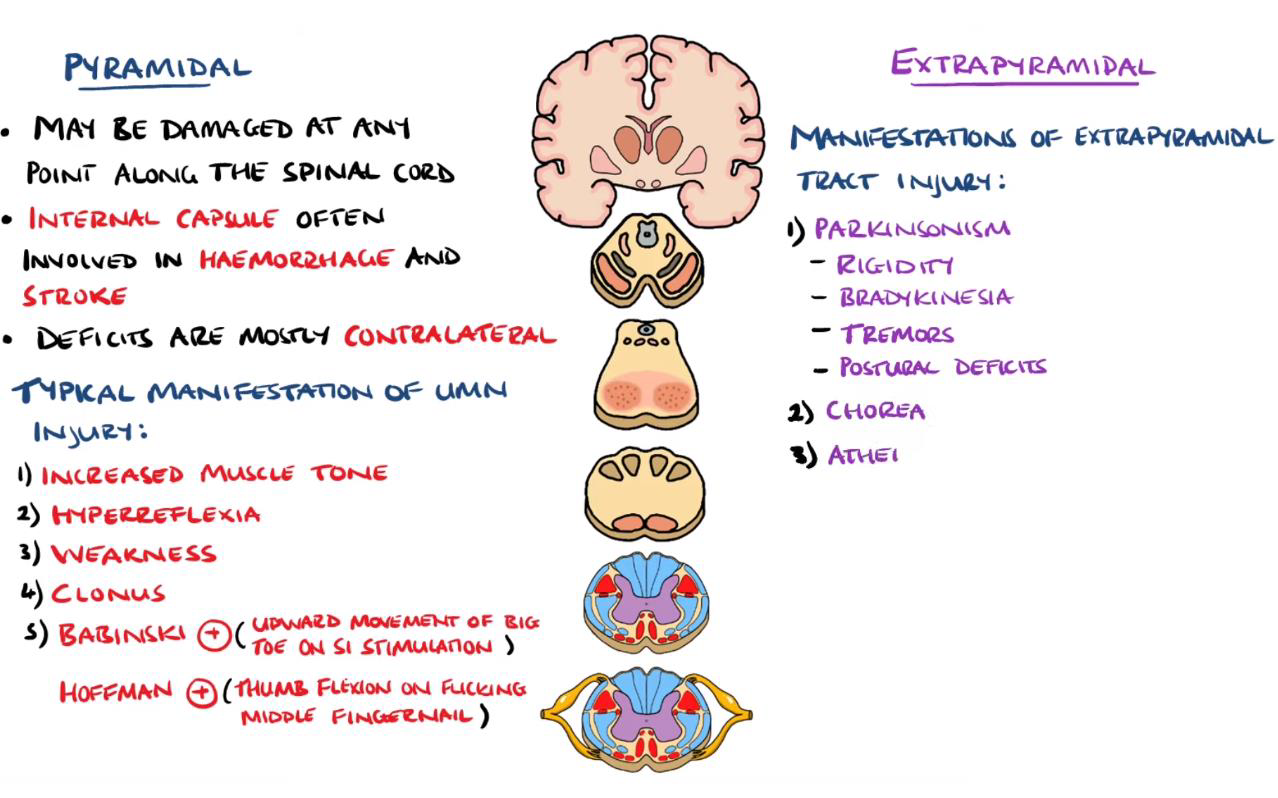 PYRAMIDAL
• MAY BE DAMAGED AT ANY
POINT ALONG THE SPINAL CORD
• INTERNAL CAPSULE OFTEN
INVOLVED IN HAEMORRHAGE AND
STROKE
• DEFICITS ARE MOSTLY CONTRALATERAL
TYPICAL MANIFESTATION OF UMN
INJURY:
1) INCREASED MUSCLE TONE
2) HYPERREFLEXIA
3) WEAKNESS
4) CLONUS
5) BABINSKI + (UPWARD MOVEMENT OF BIG
TOE ON S1 STIMULATION)
HOFFMAN + (THUMB FLEXION ON FLICKING
MIDDLE FINGERNAIL)
EXTRAPYRAMIDAL
MANIFESTATIONS OF EXTRAPYRAMIDAL
TRACT INJURY:
1) PARKINSONISM
- RIGIDITY
- BRADYKINESIA
- TREMORS
- POSTURAL DEFICITS
2) CHOREA
3) ATHEI